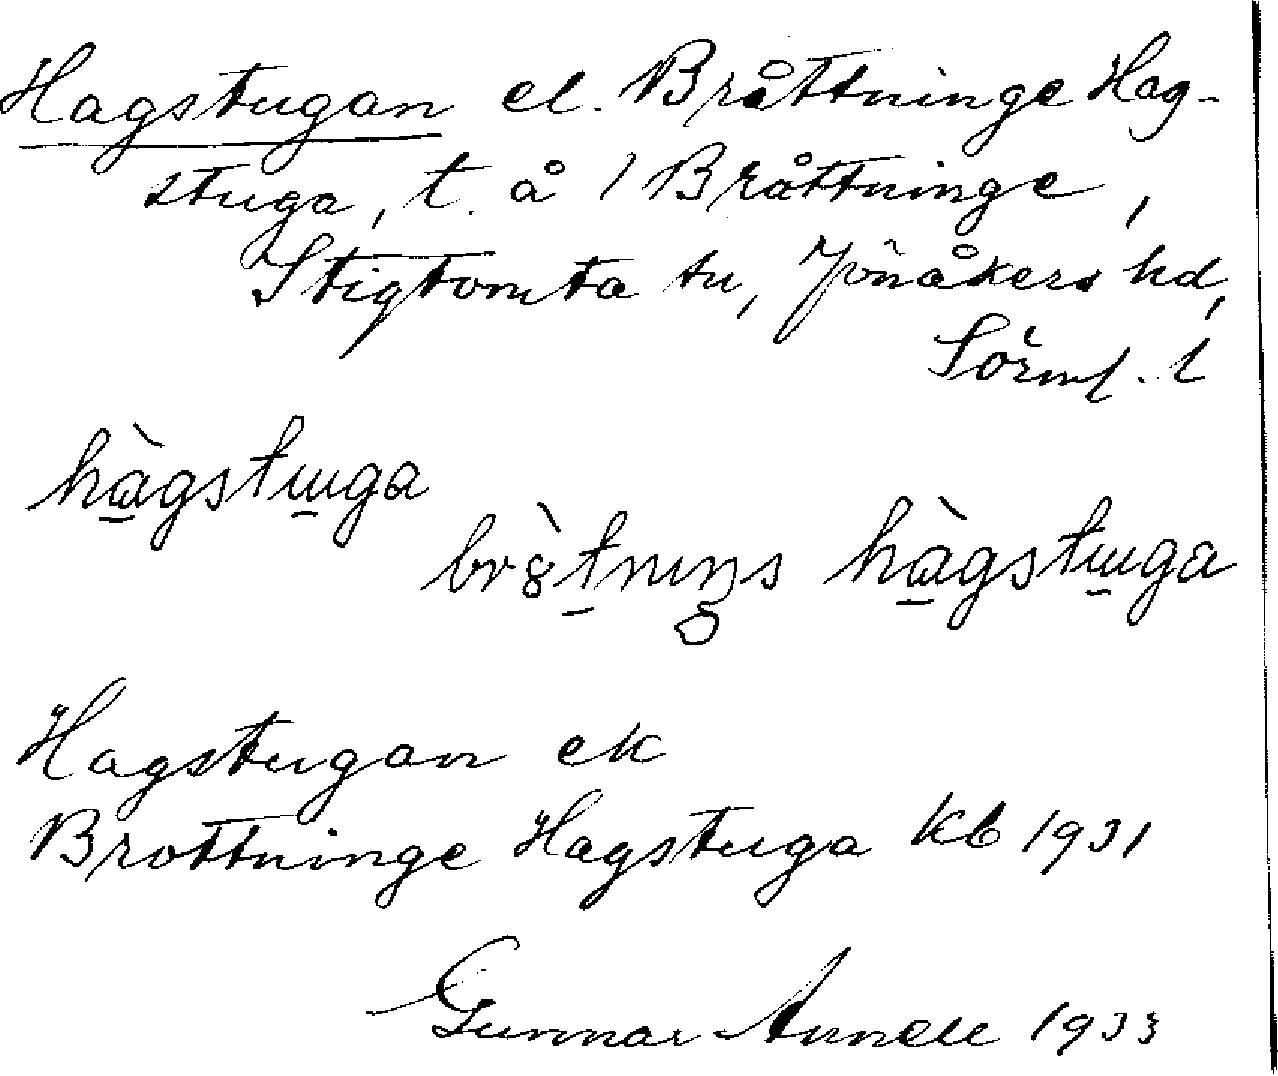 Hagstugan el. Bråttninge Hag-
stuga, t. å 1 Bråttninge,
Stigtomta sn, Jönåkers hd,
Sörml. l
hàgstuga
bròtnıŋs hàgstuga
Hagstugan ek
Brottninge Hagstuga kb 1931
Gunnar Annell 1933